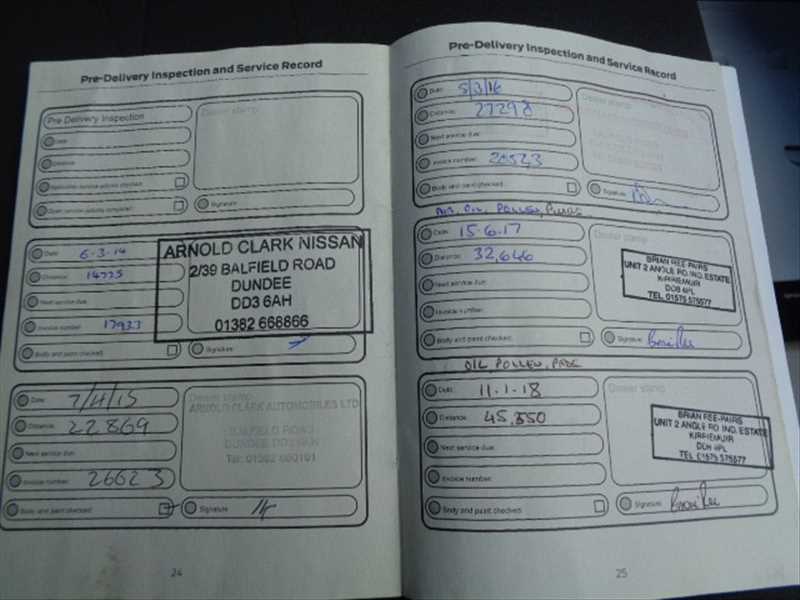 Pre-Delivery Inspection and Service Record
Pre Delivery Inspection
Dealer stamp
Date
Distance
Signature
Date: 6-3-14
Distance: 14725
Next service due:
Invoice number: 17933
Body and paint checked:
Signature
ARNOLD CLARK NISSAN
2/39 BALFIELD ROAD
DUNDEE
DD3 6AH
01382 668866
Date: 7/4/15
Distance: 22869
Next service due:
Invoice number: 26623
Body and paint checked:
Dealer stamp
ARNOLD CLARK AUTOMOBILES LTD
BALFIELD ROAD
DUNDEE
Signature
24
Pre-Delivery Inspection and Service Record
Date: 5/3/16
Distance: 27298
Next service due:
Invoice number:
Body and paint checked:
Dealer stamp
Signature
OIL, POLLEN,
Date: 15-6-17
Distance: 32,646
Next service due:
Invoice number:
Body and paint checked:
Dealer stamp
BRIAN REE-PAIRS
UNIT 2 ANGLE RD. IND. ESTATE
KIRRIEMUIR
DD8 4PL
TEL. 01575 575577
Signature
OIL, POLLEN,
Date: 11-1-18
Distance: 45,550
Next service due:
Invoice number:
Body and paint checked:
Dealer stamp
BRIAN REE-PAIRS
UNIT 2 ANGLE RD. IND. ESTATE
KIRRIEMUIR
DD8 4PL
TEL. 01575 575577
Signature
25